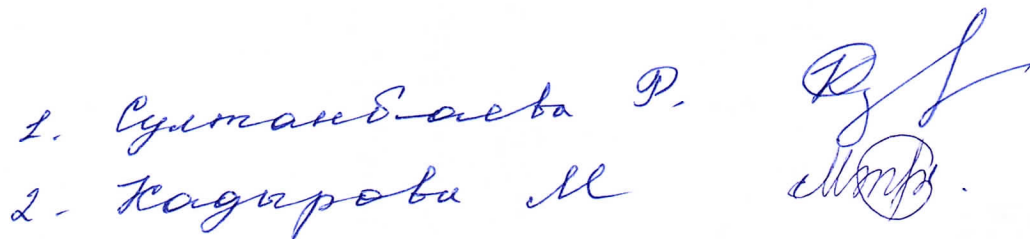 1. Султанбаева Р.
2. Кадырова М